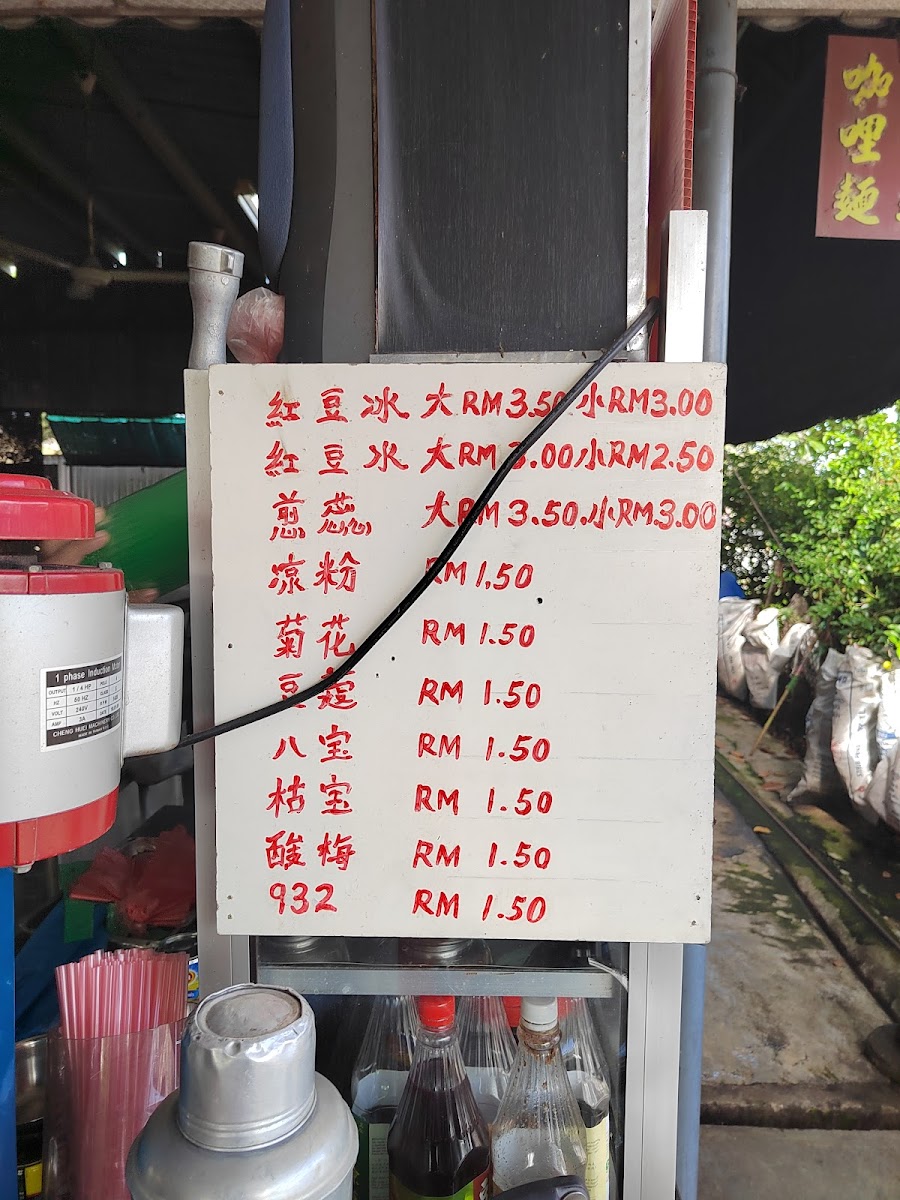 咖哩麵
紅豆冰 大RM3.50 小RM3.00
紅豆冰 大RM3.00小RM2.50
煎蕊 大RM3.50.小RM3.00
凉粉 RM1.50
菊花 RM 1.50
豆蔻 RM 1.50
八宝 RM 1.50
桔宝 RM 1.50
酸梅 RM 1.50
932 RM 1.50
1 phase Induction
OUTPUT 1/4 HP
HZ. 50 HZ
VOLT 240V
AMP 3A
CHENG HUEI MACHINERY